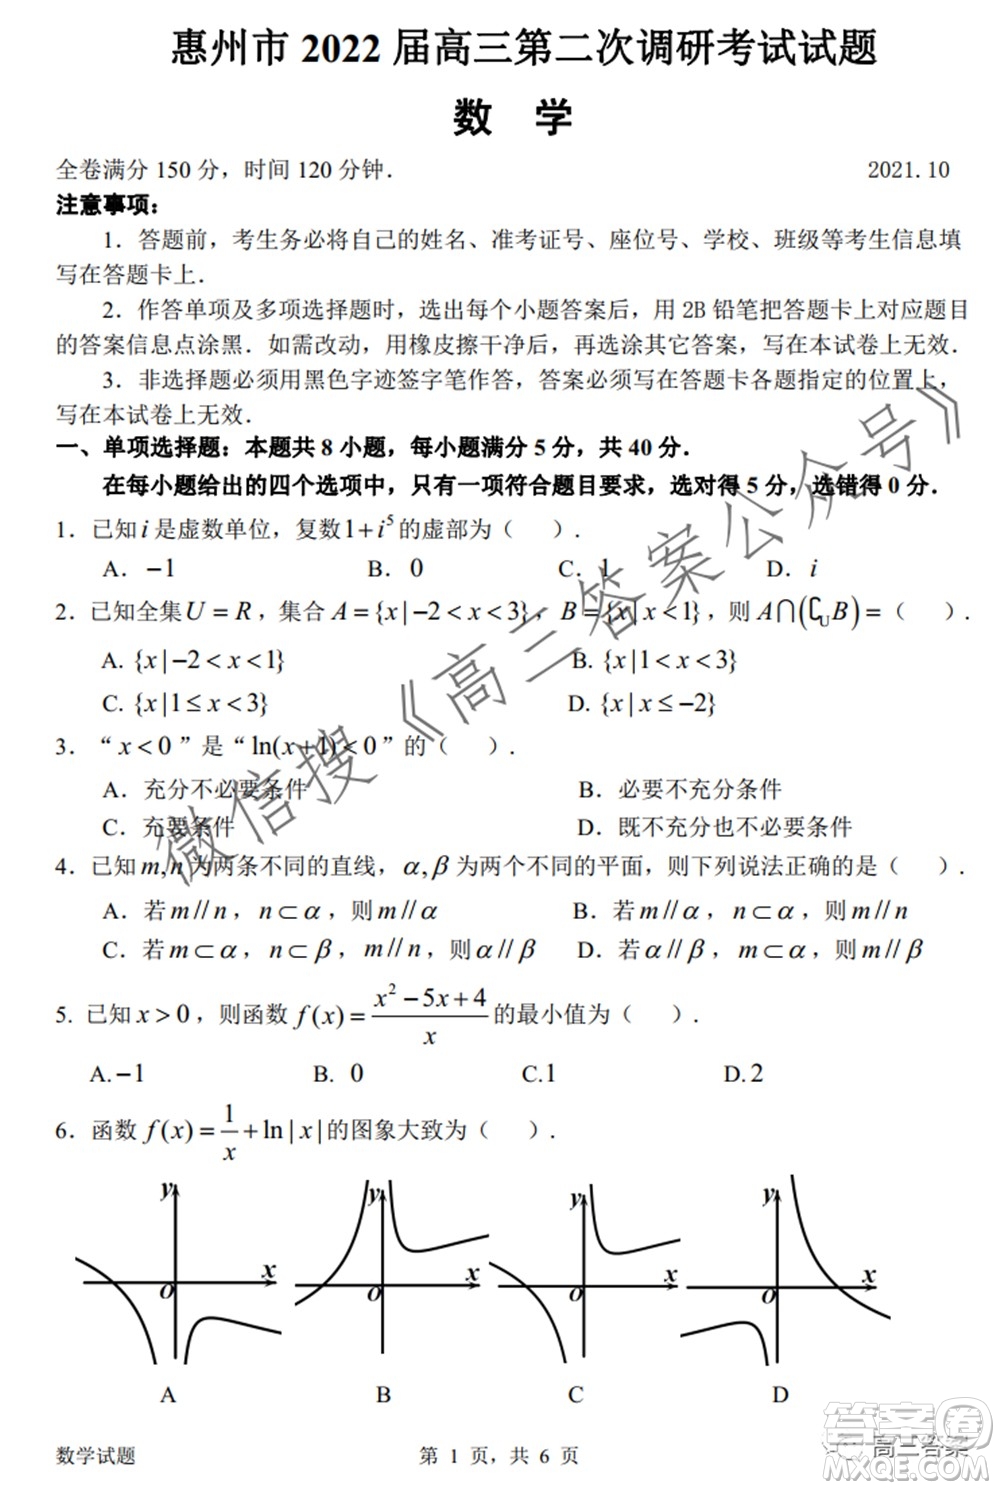 惠州市 2022 届高三第二次调研考试试题
数 学
全卷满分 150 分，时间 120 分钟． 2021.10
注意事项：
1．答题前，考生务必将自己的姓名、准考证号、座位号、学校、班级等考生信息填
写在答题卡上．
2．作答单项及多项选择题时，选出每个小题答案后，用 2B 铅笔把答题卡上对应题目
的答案信息点涂黑．如需改动，用橡皮擦干净后，再选涂其它答案，写在本试卷上无效．
3．非选择题必须用黑色字迹签字笔作答，答案必须写在答题卡各题指定的位置上，
写在本试卷上无效．
一、单项选择题：本题共 8 小题，每小题满分 5 分，共 40 分．
在每小题给出的四个选项中，只有一项符合题目要求，选对得 5 分，选错得 0 分．
1．已知 i 是虚数单位，复数 1+i⁵ 的虚部为（ ）．
A．−1 B．0 C．1 D．i
2．已知全集 U = R，集合 A = {x | −2 < x < 3}，B = {x | x < 1}，则 A∩(∁UB) =（ ）．
A. {x | −2 < x < 1} B. {x | 1 < x < 3}
C. {x | 1 ≤ x < 3} D. {x | x ≤ −2}
3．“ x < 0 ”是“ ln(x+1) < 0 ”的（ ）．
A．充分不必要条件 B．必要不充分条件
C．充要条件 D．既不充分也不必要条件
4．已知 m,n 为两条不同的直线，α,β 为两个不同的平面，则下列说法正确的是（ ）．
A．若 m // n，n ⊂ α，则 m // α B．若 m // α，n ⊂ α，则 m // n
C．若 m ⊂ α，n ⊂ β，m // n，则 α // β D．若 α // β，m ⊂ α，则 m // β
5. 已知 x > 0，则函数 f(x) = (x² − 5x + 4)/x 的最小值为（ ）．
A. −1 B. 0 C. 1 D. 2
6．函数 f(x) = 1/x + ln | x | 的图象大致为（ ）．
y x O y x O y x O y x O
A B C D
数学试题 第 1 页，共 6 页
微信搜《高三答案公众号》
高三答案
答案圈
MXQE.COM